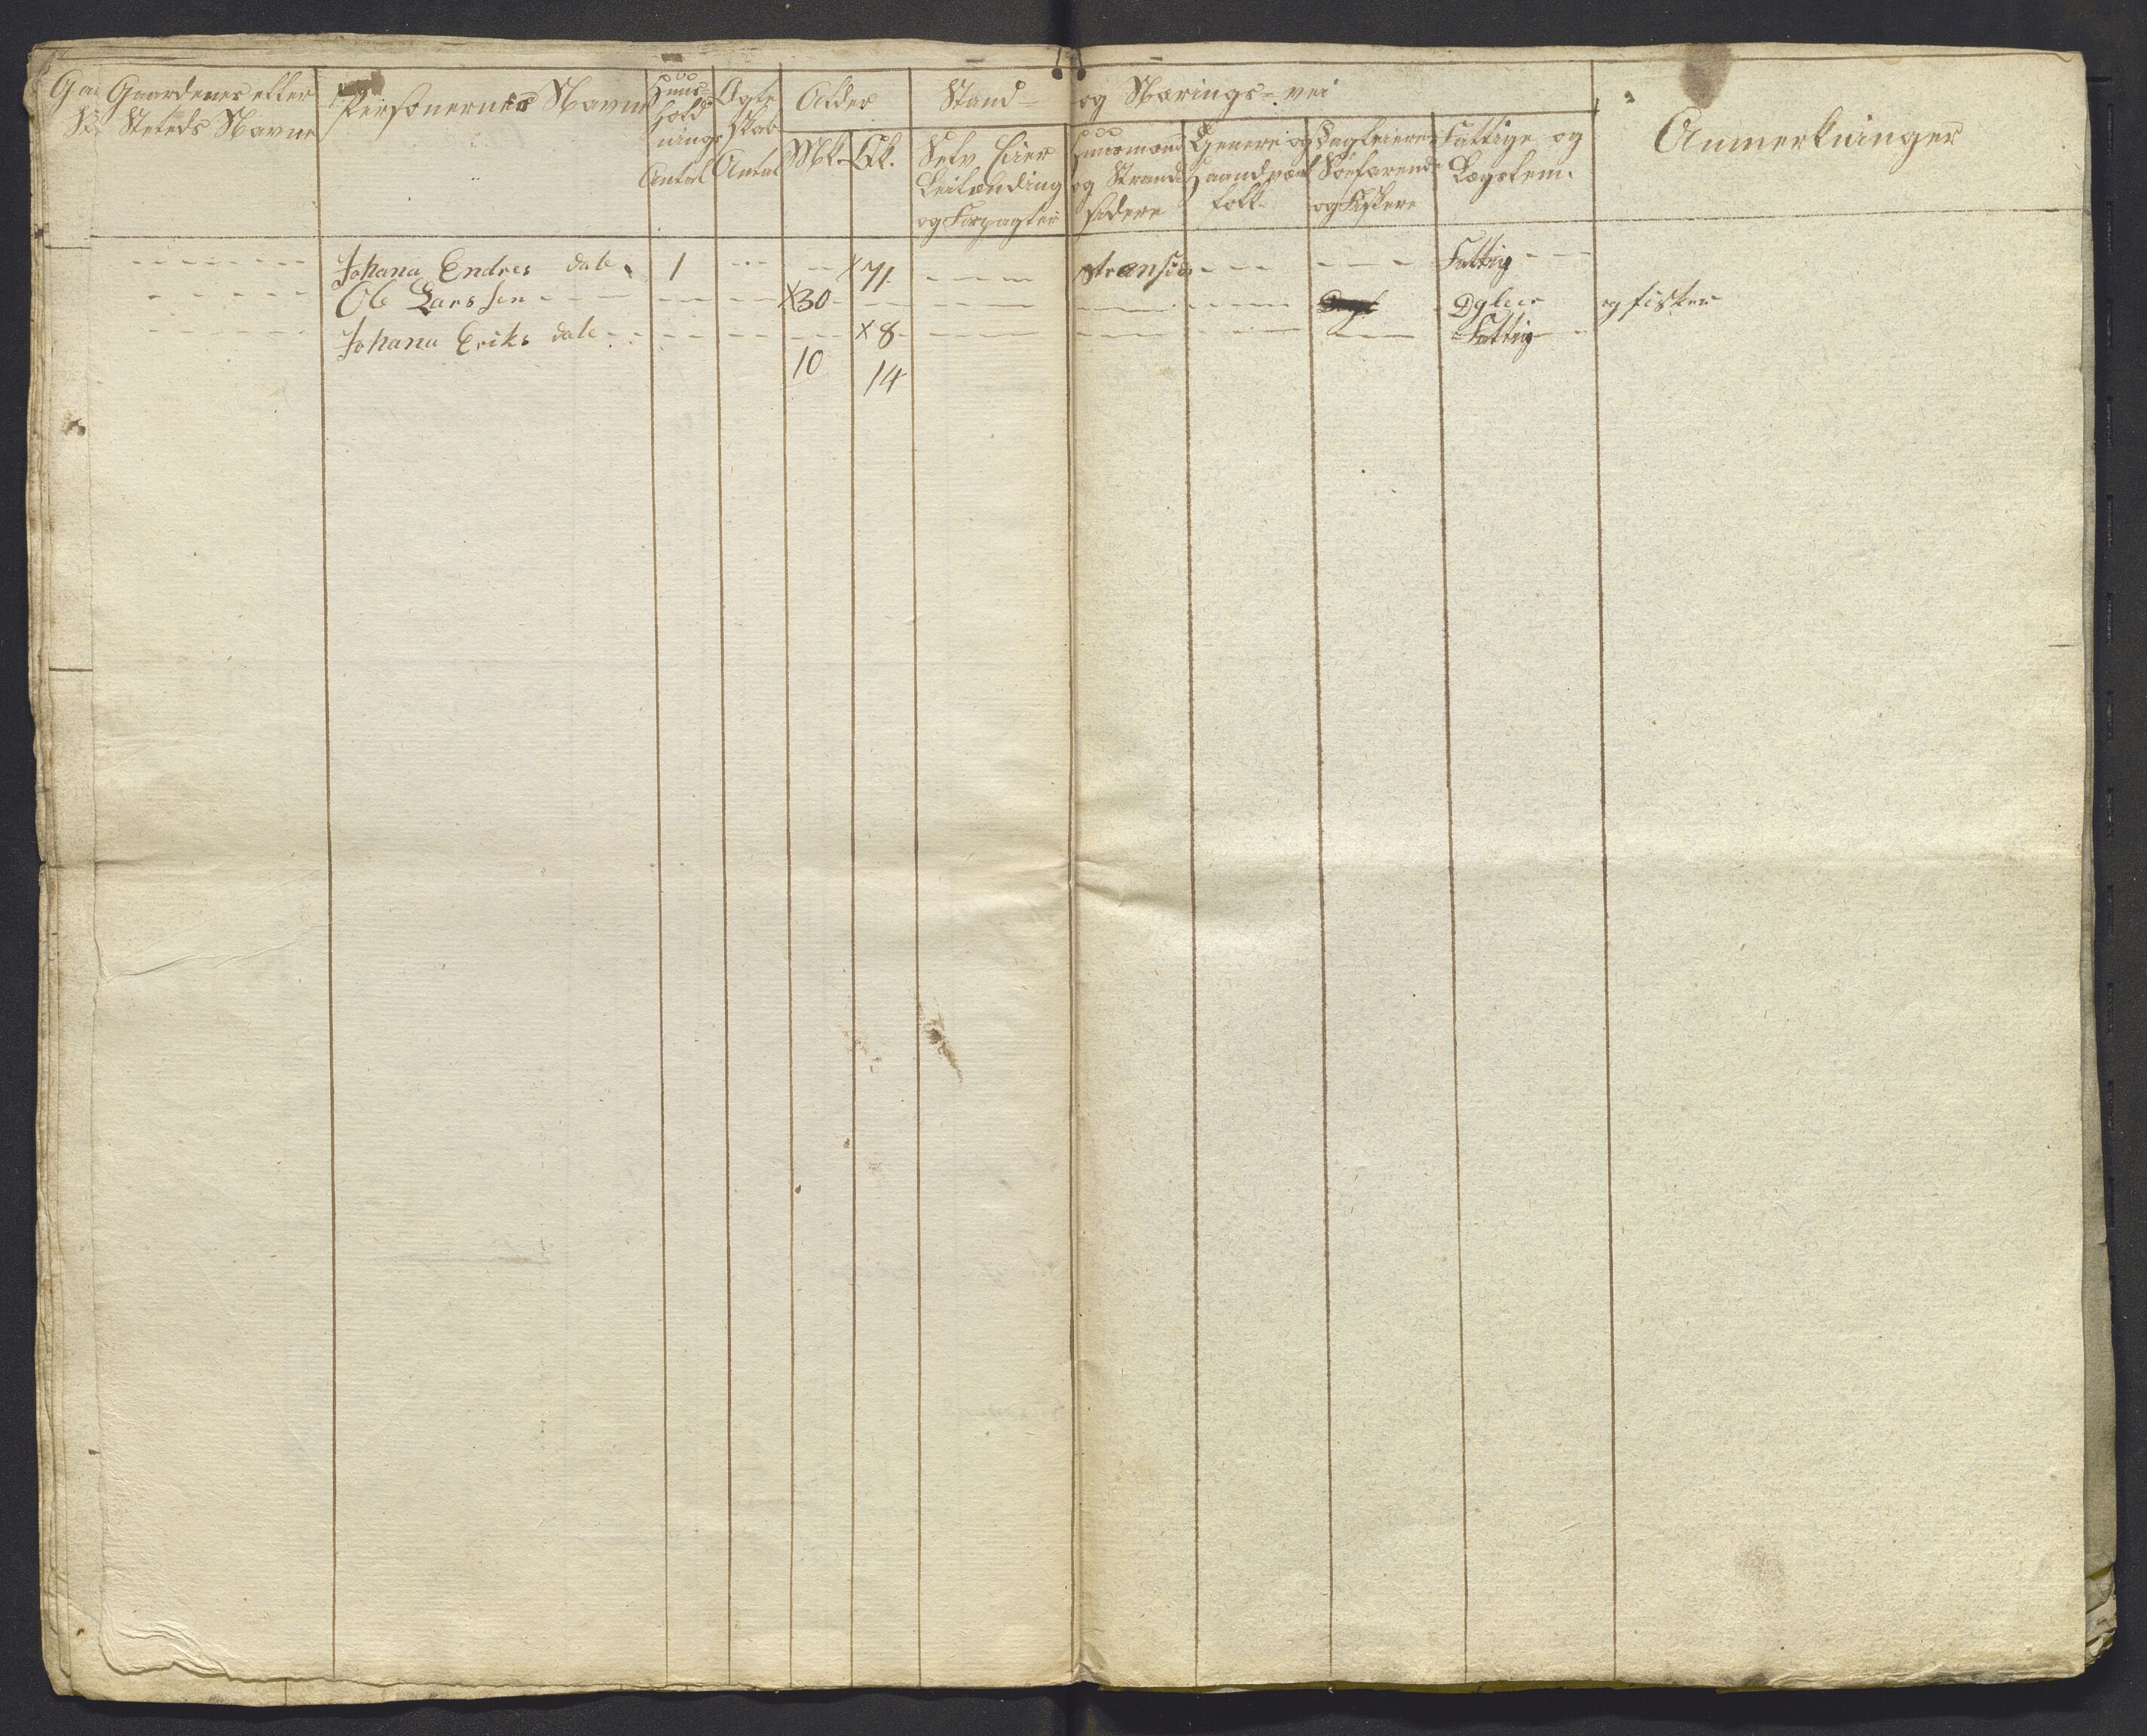 Gaardenes eller
Steeds Navne
Personernes Navne
Huus-
hold
nings
Antal
Ægte
skab
Antal
Alder
Mk. Qk.
Stand- og Nærings-vei
Selv Eier
Leilænding
og Forpagter
Huusmænd
og Strand
sidere
Genere og
Haandværk
folk
Dagleiere
Söefarende
og Fiskere
Fattige og
Lægslem.
Anmerkninger
Johana Endres dat. 1 x 71 Stransid Fattig
Ole Larssen x30 Dgleie og fisker
Johana Eriks dat. x 8 Fattig
10 14